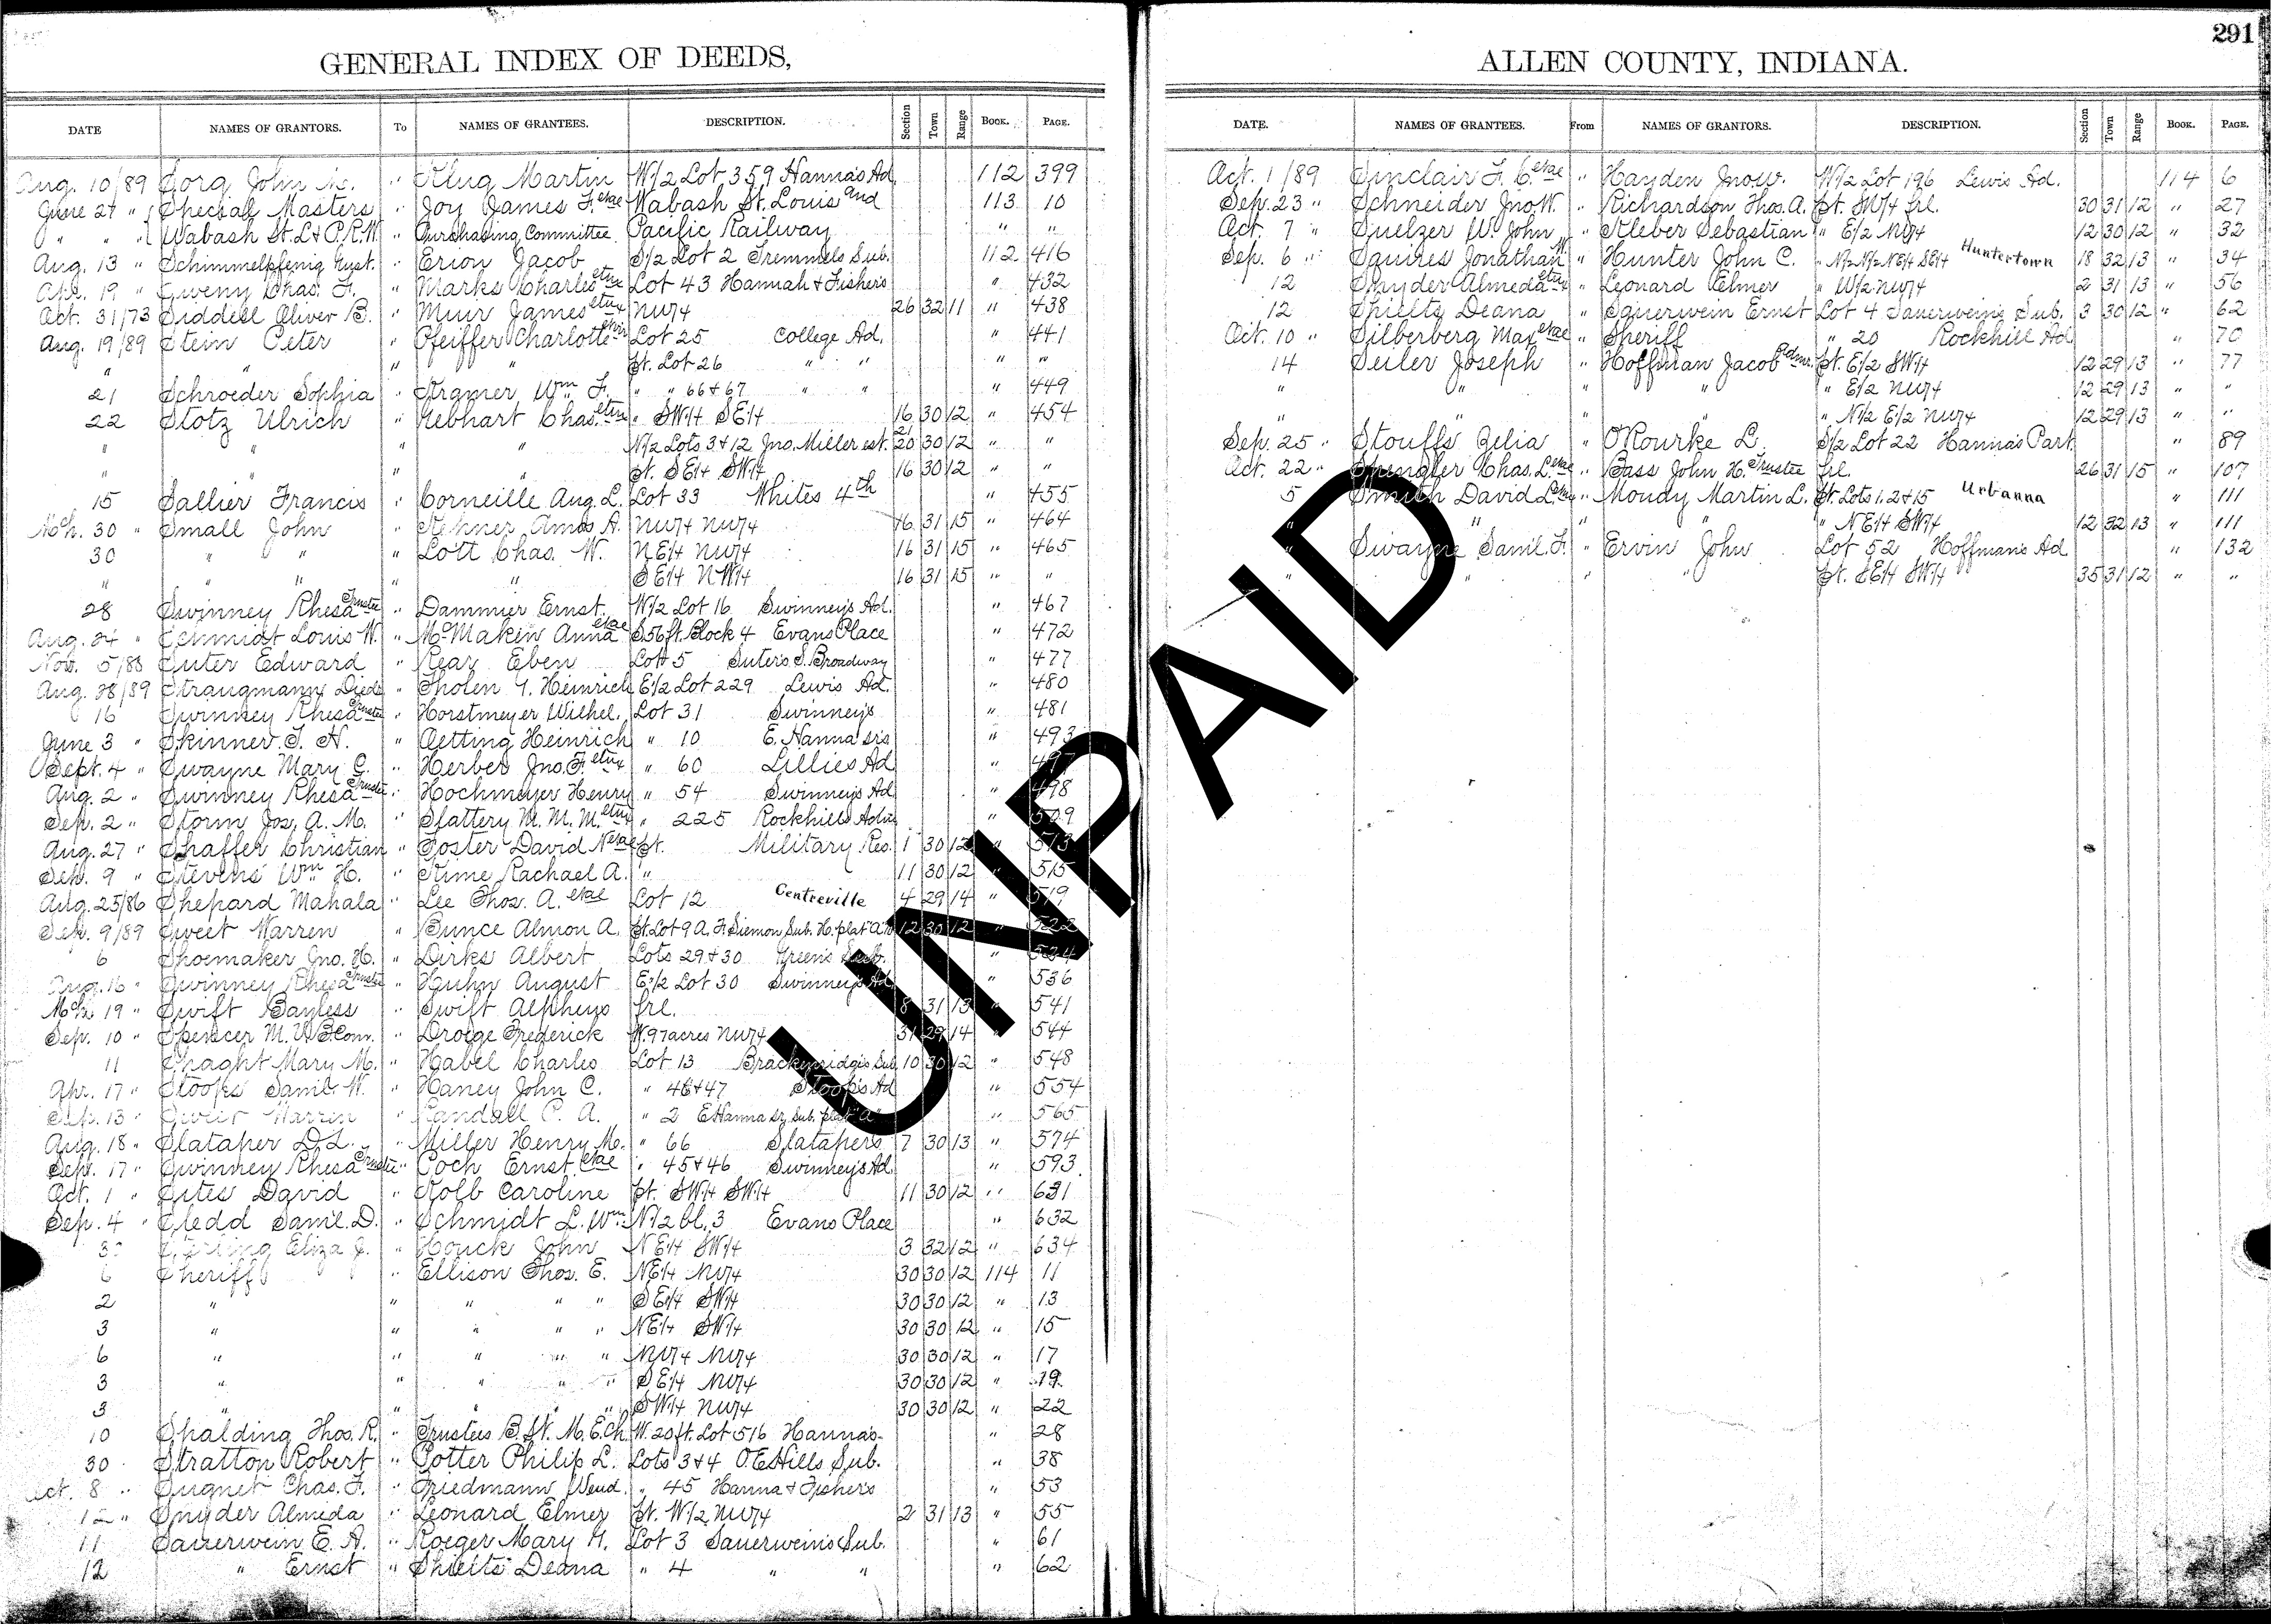 291
GENERAL INDEX OF DEEDS,
DATE NAMES OF GRANTORS. To NAMES OF GRANTEES. DESCRIPTION. Section Town Range BOOK. PAGE.
Aug. 10/89 Sorg John M. " Klug Martin W1/2 Lot 359 Hanna's Ad. 112 399
June 27 " Special Masters " Joy James F. etal Wabash St. Louis and 113 10
" " Wabash St. L & P. R.W. " Purchasing Committee Pacific Railway " "
Aug. 13 " Schimmelpfenig Gust. " Erion Jacob S1/2 Lot 2 Tremmels Sub. 112 416
Apr. 19 " Sweny Chas. F. " Marks Charles etux Lot 43 Hannah & Fisher's " 432
Oct. 31/73 Siddell Oliver B. " Muir James etux NW/4 26 32 11 " 438
Aug. 19/89 Stein Peter " Pfeiffer Charlotte etvir Lot 25 College Ad. " 441
" " " pt. Lot 26 " " " "
21 Schroeder Sophia " Kramer Wm F. " " 66 & 67 " " " 449
22 Stotz Ulrich " Gebhart Chas. etux " SW/4 SE/4 16 30 12 " 454
" " " " N1/2 Lots 3 & 12 Jno. Miller est. 21 20 30 12 " "
" " " pt. SE/4 SW/4 16 30 12 " "
15 Sallier Francis " Corneille Aug. L. Lot 33 Whites 4th " 455
Mch. 30 " Small John " Amos A. NW/4 NW/4 16 31 15 " 464
30 " " " Lott Chas. W. NE/4 NW/4 16 31 15 " 465
" " " " " SE/4 NW/4 16 31 15 " "
28 Swinney Rhesa Trustee " Dammier Ernst. W1/2 Lot 16 Swinney's Ad. " 467
Aug. 24 " Schmidt Louis W. " McMakin Anna etal S. 56 ft. Block 4 Evans Place " 472
Nov. 5/88 Suter Edward " Rear Eben Lot 5 Suter's S. Broadway " 477
Aug. 28/89 Straugmann Died. " Tholen G. Heinrich E1/2 Lot 229 Lewis Ad. " 480
16 Swinney Rhesa Trustee " Horstmeyer Wilhel. Lot 31 Swinney's " 481
June 3 " Skinner S. H. " Oetting Heinrich " 10 E. Hanna sr's " 493
Sept. 4 " Swayne Mary C. " Herber Jno. F. etux " 60 Lillies Ad " 497
Aug. 2 " Swinney Rhesa Trustee " Hochmeyer Henry " 54 Swinney's Ad " 498
Sep. 2 " Storm Jos. A. M. " Slattery M. M. M. etux " 225 Rockhills Adn " 509
Aug. 27 " Shaffer Christian " Foster David N etal pt. Military Res. 1 30 12 " 513
Sep. 9 " Stevens Wm H. " Kime Rachael A. " 11 30 12 " 515
Aug. 25/86 Shepard Mahala " Lee Thos. A. etal Lot 12 Centreville 4 29 14 " 519
Sep. 9/89 Sweet Warren " Bunce Almon A. pt. Lot 9 A. F. Siemon Sub. H. plat "A" 12 30 12 " 522
6 Shoemaker Jno. H. " Dirks Albert Lots 29 & 30 Green's Sub. " 534
Aug. 16 " Swinney Rhesa Trustee " Huhn August E1/2 Lot 30 Swinney's Ad. " 536
Mch. 19 " Swift Bayless " Swift Alpheus frl. 8 31 13 " 541
Sep. 10 " Spencer M. V. B. Com. " Droege Frederick W. 97 acres NW/4 31 29 14 " 544
11 Spaght Mary M. " Habel Charles Lot 13 Brackenridge's Sub. 10 30 12 " 548
Apr. 17 " Stoops Saml. W. " Haney John C. " 46 & 47 Stoop's Ad " 554
Sep. 13 " Sweet Warren " Randall P. A. " 2 E Hanna sr. Sub. plat "A" " 565
Aug. 18 " Slataper D. L. " Miller Henry M. " 66 Slatapers 7 30 13 " 574
Sep. 17 " Swinney Rhesa Trustee " Poch Ernst etal " 45 & 46 Swinney's Ad " 593
Oct. 1 " Sites David " Kolb Caroline pt. SW/4 SW/4 11 30 12 " 631
Sep. 4 " Sledd Saml. D. " Schmidt L. Wm. N1/2 bl. 3 Evans Place " 632
30 Eliza J. " Houck John NE/4 SW/4 3 32 12 " 634
6 Sheriff " Ellison Thos. E. NE/4 NW/4 30 30 12 114 11
2 " " " " " SE/4 SW/4 30 30 12 " 13
3 " " " " " NE/4 SW/4 30 30 12 " 15
6 " " " " " NW/4 NW/4 30 30 12 " 17
3 " " " " " SE/4 NW/4 30 30 12 " 19
3 " " " " SW/4 NW/4 30 30 12 " 22
10 Spalding Thos. R. " Trustees B. St. M. E. Ch. W. 20 ft. Lot 516 Hanna's " 28
30 Stratton Robert " Potter Philip L. Lots 3 & 4 O. E. Hills Sub. " 38
Oct. 8 " Sugnet Chas. F. " Friedmann Wend. " 45 Hanna & Fishers " 53
12 " Snyder Almeda " Leonard Elmer pt. W1/2 NW/4 2 31 13 " 55
11 Sauerwein E. A. " Roeger Mary H. Lot 3 Sauerwein's Sub. " 61
12 " Ernst " Shielts Deana " 4 " " " 62
ALLEN COUNTY, INDIANA.
DATE. NAMES OF GRANTEES. From NAMES OF GRANTORS. DESCRIPTION. Section Town Range BOOK. PAGE.
Oct. 1/89 Sinclair F. C. etal " Hayden Jno. W. W1/2 Lot 196 Lewis Ad. 114 6
Sep. 23 " Schneider Jno. W. " Richardson Thos. A. pt. SW/4 frl. 30 31 12 " 27
Oct. 7 " Suelzer W. John " Kleber Sebastian " E/2 NW/4 12 30 12 " 32
Sep. 6 " Squires Jonathan M " Hunter John C. " N1/2 N1/2 NE/4 SE/4 Huntertown 18 32 13 " 34
12 Snyder Almeda etux " Leonard Elmer " W/2 NW/4 2 31 13 " 56
12 Shielts Deana " Sauerwein Ernst Lot 4 Sauerweins Sub. 3 30 12 " 62
Oct. 10 " Silberberg Max etal " Sheriff " 20 Rockhill Ad " 70
14 Seiler Joseph " Hoffman Jacob Admr. pt. E/2 SW/4 12 29 13 " 77
" " " " " E/2 NW/4 12 29 13 " "
" " " " " N1/2 E/2 NW/4 12 29 13 " "
Sep. 25 " Stouffs Zelia " O'Rourke L. S/2 Lot 22 Hanna's Park " 89
Oct. 22 " Spengler Chas. L. etal " Bass John H. Trustee frl. 26 31 15 " 107
5 Smith David L. etux " Moudy Martin L. pt. Lots 1. 2 & 15 Urbanna " 111
" " " " " NE/4 SW/4 12 32 13 " 111
" Swayne Saml. F. " Ervin John Lot 52 Hoffman's Ad " 132
" " " " pt. SE/4 SW/4 35 31 12 " "
UNPAID